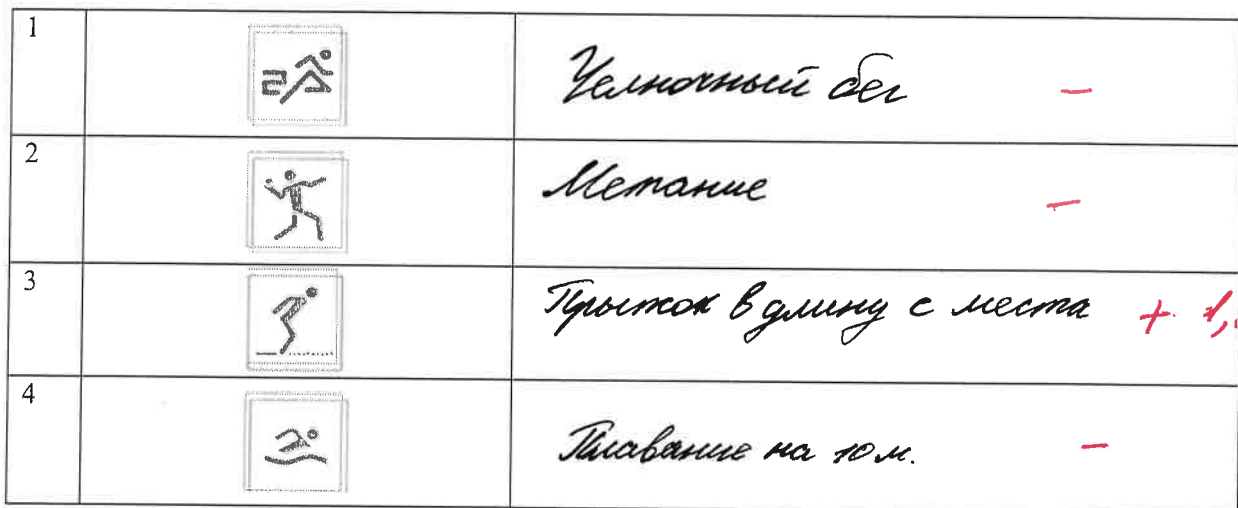 1 Челночный бег –
2 Метание –
3 Прыжок в длину с места + 1,
4 Плавание на 10 м. –